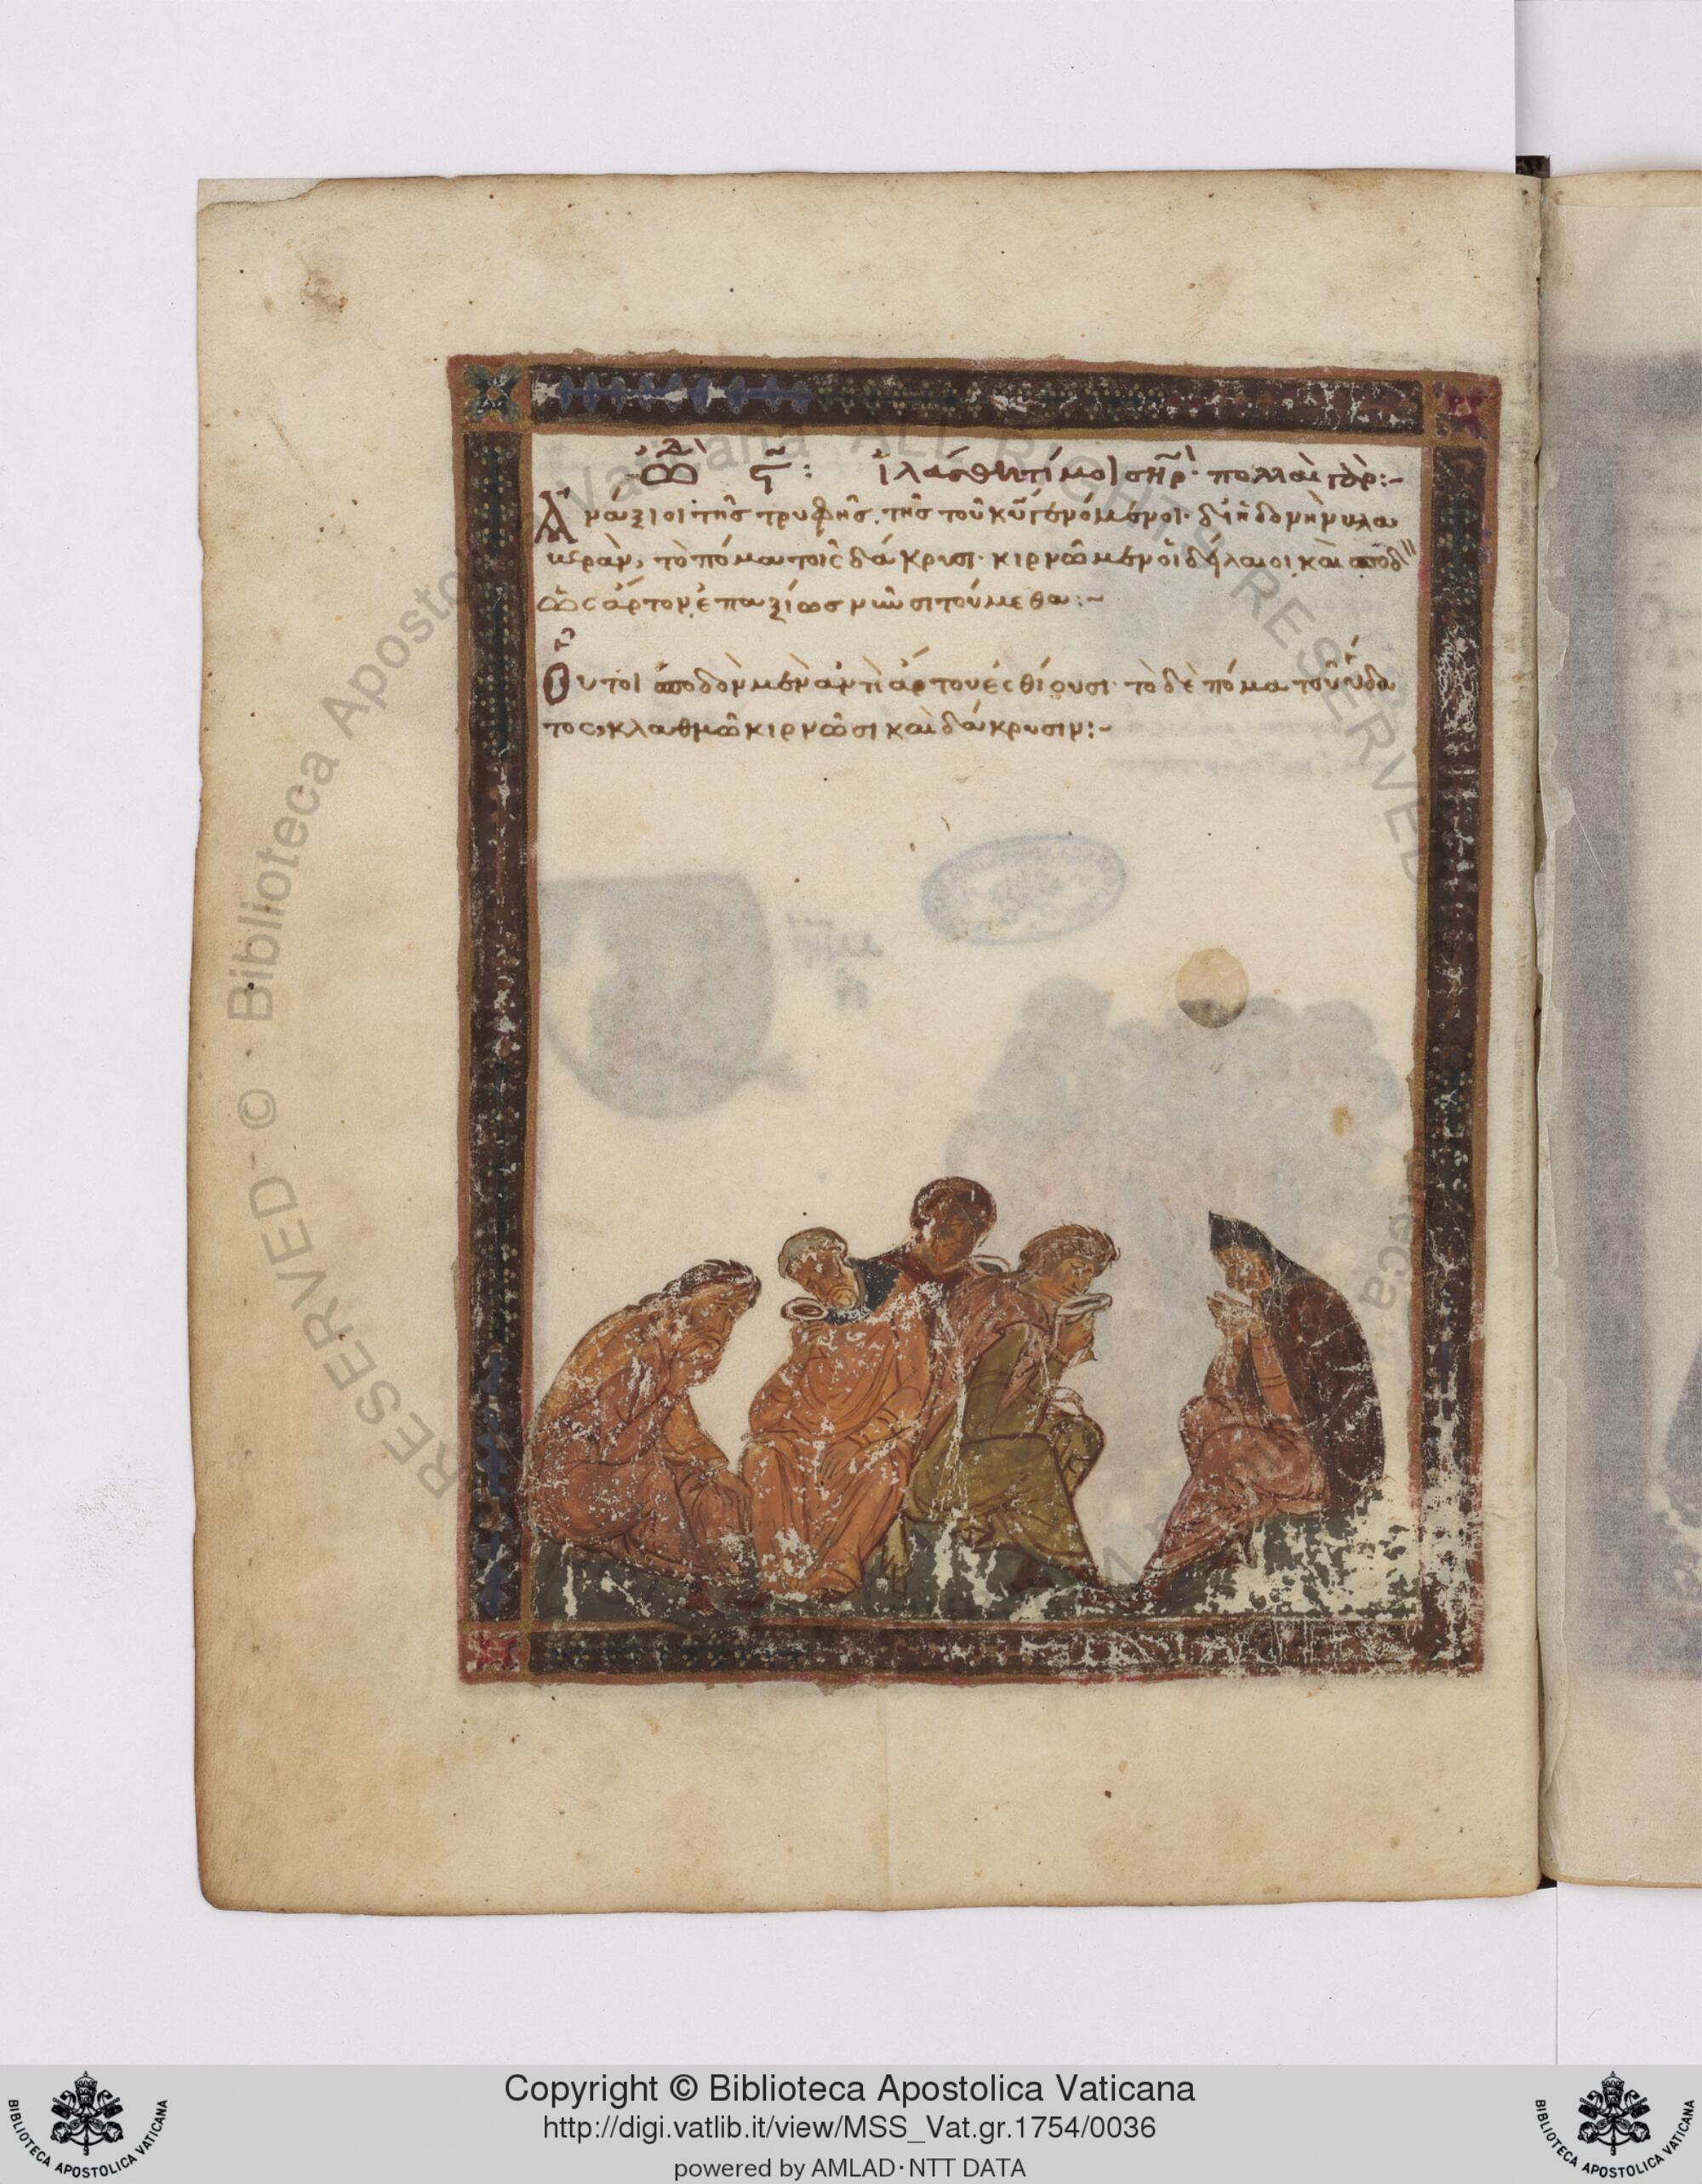 ᾨδὴ ϛ: ἱλάσθητί μοι σ͂ηρ· πολλαὶ γὰρ:-
Ἀνάξιοι τῆς τρυφῆς, τῆς τοῦ κ͂υ γενόμενοι· δι' ἡδονὴν
κεράν, τὸ πόμα τοῖς δάκρυσι· κιρνῶμεν οἱ δείλαιοι, καὶ σποδ
ὡς ἄρτον, ἐπαξίως νῦν σιτούμεθα:-
Οὗτοι σποδὸν μὲν ἀντὶ ἄρτου ἐσθίουσι· τὸ δὲ πόμα τοῦ ὕδα
τος, κλαθμῶ κιρνῶσι καὶ δάκρυσιν:-
RESERVED © Biblioteca Apostolica Vaticana ALL RIGHTS RESERVED
BIBLIOTECA APOSTOLICA VATICANA
Copyright © Biblioteca Apostolica Vaticana
http://digi.vatlib.it/view/MSS_Vat.gr.1754/0036
powered by AMLAD·NTT DATA
BIBLIOTECA APOSTOLICA VATICANA